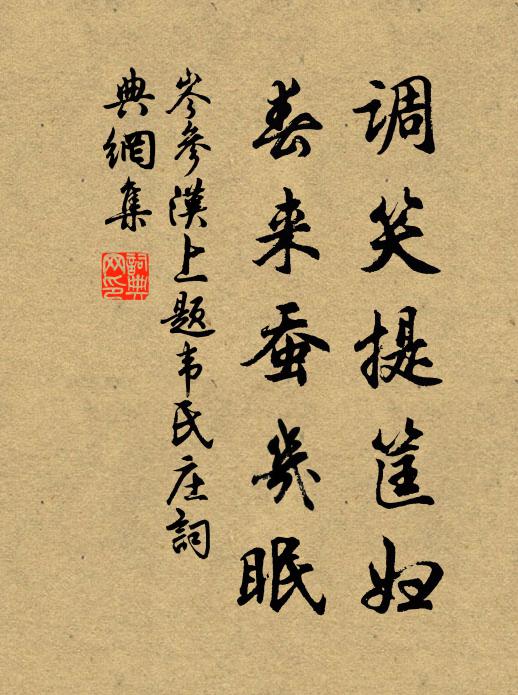 调笑提筐妇
春来蚕几眠
岑参漢上题韦氏庄詞
典網集
詞典
网印